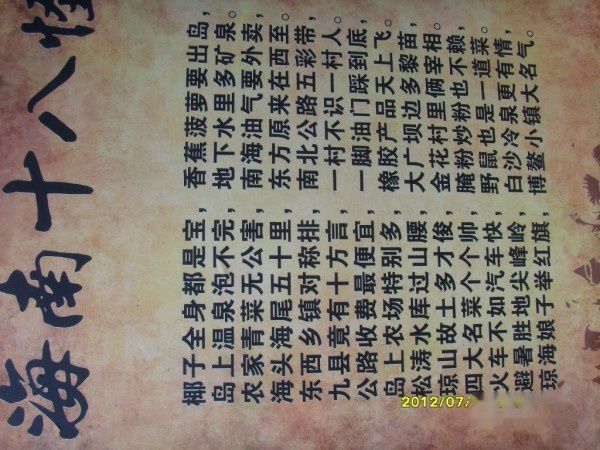 海南十八怪
椰子全身都是宝，香蕉菠萝要出岛，
岛上温泉泡不完，地下水里多矿泉。
农家青菜无公害，南海油气要外卖
海头海尾五十里，东方原来在西至。
东西乡镇对称排，南北公路五彩带，
九县竟有十方言，一村不识一村人。
公路收费最便宜，一脚油门踩到底，
岛上农场特别多，橡胶产品天上飞。
松涛水库过山腰，大广坝边多黎苗，
琼山故土多才俊，金花村里俩宰相。
四大名菜个个帅，腌粉炒粉也不赖，
火车不如汽车快，野鼠也是一道菜。
避暑胜地尖峰岭，白沙冷泉更有情，
琼海娘子举红旗，博鳌小镇大名气。
2012/07/